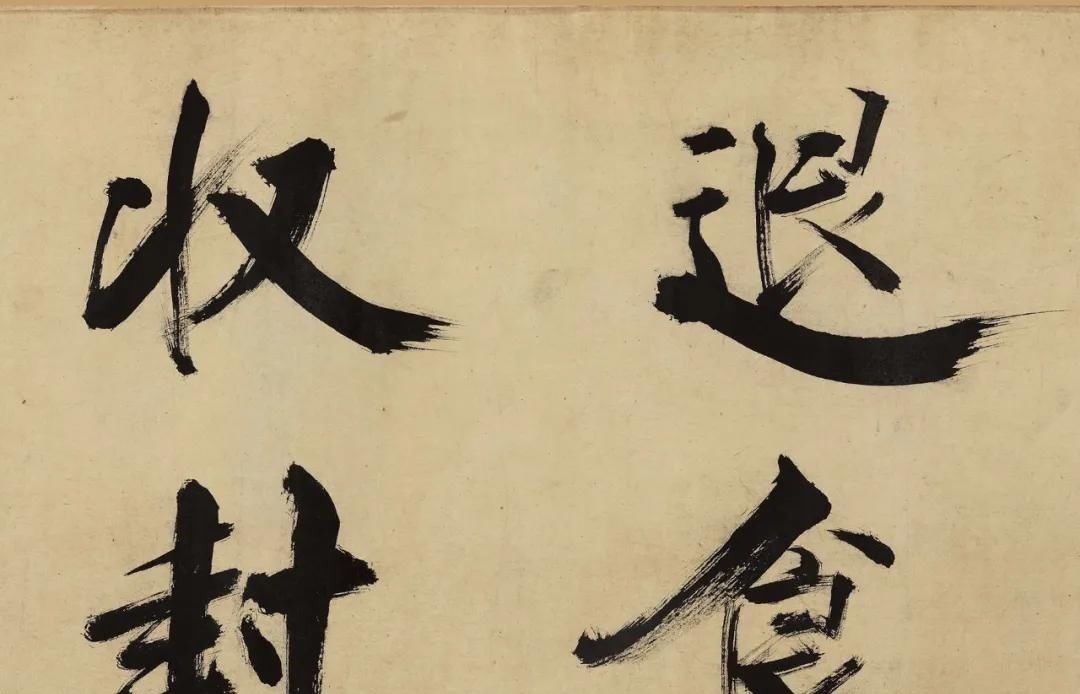 退食
收封